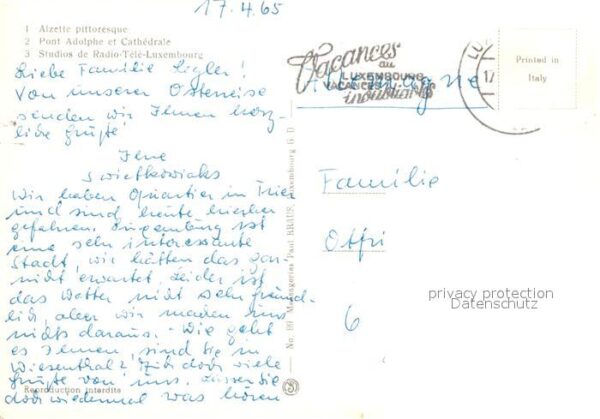 17.4.65
1 Alzette pittoresque
2 Pont Adolphe et Cathédrale
3 Studios de Radio-Télé-Luxembourg
Liebe Familie Sigler!
Von unserer Osterreise
senden wir Ihnen herz-
liche Grüße
Ihre
Swietkowiaks
Wir haben Quartier in Trier
und sind heute hierher
gefahren. Luxemburg ist
eine sehr interessante
Stadt, wir hätten das gar
nicht erwartet. Leider ist
das Wetter nicht sehr freund-
lich, aber wir machen uns
nichts daraus. - Wie geht
es Ihnen, sind Sie in
Wiesenthal? Für doch viele
Grüße von uns. Lassen Sie
doch wiedermal was hören
Reproduction interdite
No. 191 Messageries Paul KRAUS, Luxembourg G. D.
Vacances
au
LUXEMBOURG
VACANCES
inoubliables
Allemagne
Printed in
Italy
Familie
Otfri
6
privacy protection
Datenschutz